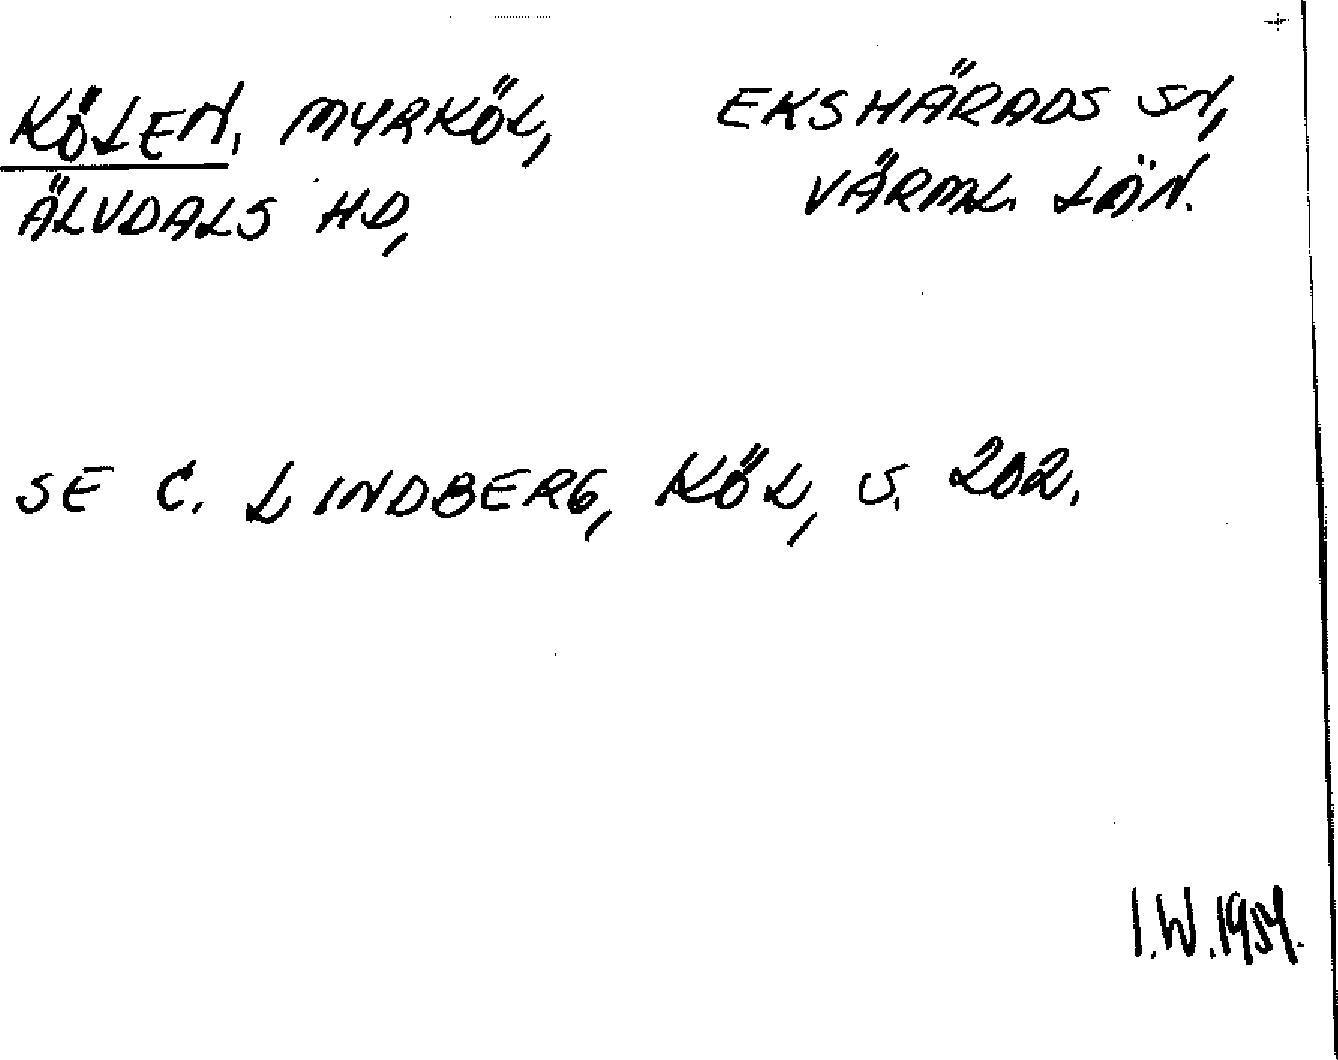 KÖLEN, MYRKÖL, EKSHÄRADS SN,
ÄLVDALS HD, VÄRML. LÄN.
SE C. LINDBERG, KÖL, S. 202.
I.W. 1954.